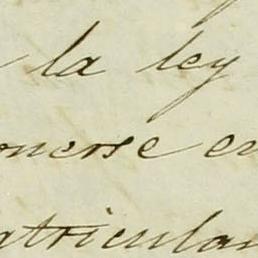 la ley
onerse en
atricular